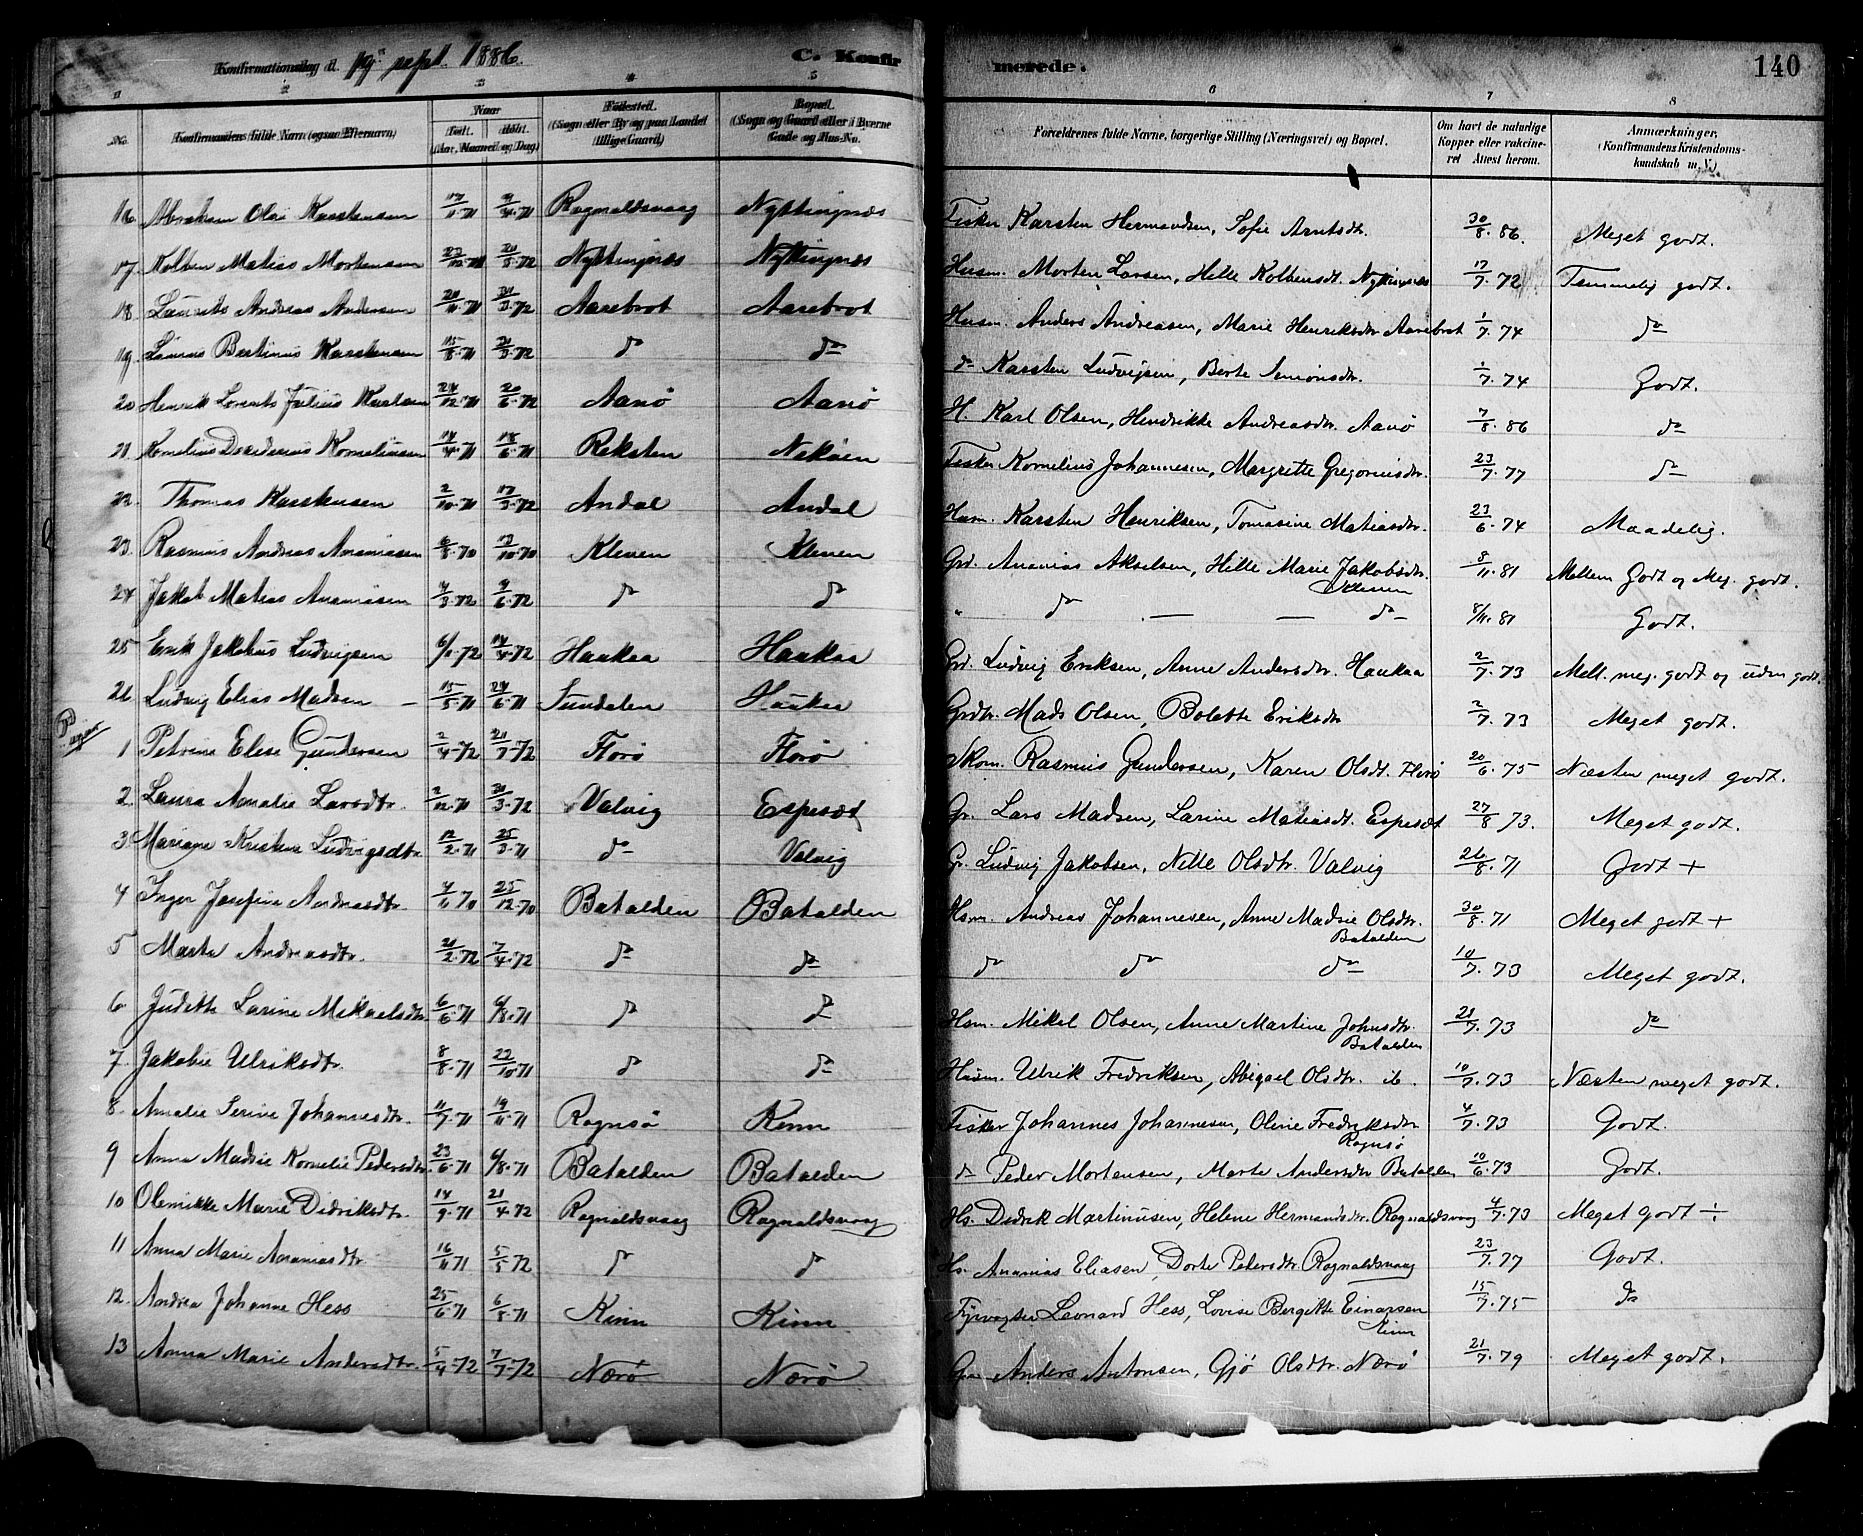 Konfirmationsdag d. 19de sept. 1886. C. Konfirmerede. 140
1 2 3 4 5 6 7 8
No. Konfirmandens fulde Navn (ogsaa Efternavn) Naar Født. Døbt. (Aar, Maaned og Dag) Fødested. (Sogn eller By og paa Landet tillige Gaard) Bopæl. (Sogn og Gaard eller i Byerne Gade og Hus-No. Forældrenes fulde Navne, borgerlige Stilling (Næringsvei) og Bopæl. Om havt de naturlige Kopper eller vakcineret Attest herom. Anmærkninger, (Konfirmandens Kristendomskundskab m. V.)
16 Abraham Olai Karstensen 17/11.71 4/4.71 Rognaldsvaag Nyttingnes Fisker Karsten Hermandsen, Sofie Arntsdt. 30/8.86. Meget godt.
17. Kolben Matias Mortensen 23/12.71 21/3.72 Nyttingnæs Nyttingnæs Husm. Morten Larsen, Helle Kolbensdt. Nyttingnæs 17/7.72 Temmelig godt.
18. Laurits Andreas Andersen 21/11.71 31/3.72 Aarebrot Aarebrot Husm. Anders Andreasen, Marie Henriksdtr Aarebrot 1/7.74 do
19. Laurus Bertinus Karstensen 15/8.71 31/3.72 do do do Karsten Ludvigsen, Berte Simonsdt. 1/7.74 Godt.
20 Henrik Lorents Julius Karlsen 24/12.71 20/6.72 Aanø Aanø H. Karl Olsen, Hendrikke Andreasdtr. Aanø 7/8.86 do
21 Kornelius Desiderius Korneliusen 14/4.71 18/6.71 Reksten Nekøen Fisker Kornelius Johannesen, Margrette Gregoriusdtr. 23/7.77 do
22. Thomas Karstensen 2/10.71 17/3.72 Andal Andal Husm. Karsten Henriksen, Tomasine Matiasdtr. 23/6.74 Maadelig.
23. Rasmus Andreas Ananiasen 6/8.70 13/10.70 Kleven Kleven Grd. Ananias Akselsen, Hille Marie Jakobsdtr. Kleven 8/11.81 Mellem Godt og Meg. godt.
24 Jakob Matias Ananiasen 4/3.72 9/6.72 do do " do — — do 8/11.81 Godt.
25 Erik Jakobus Ludvigsen 6/1.72 14/4.72 Haukaa Haukaa Grd. Ludvig Eriksen, Anne Andersdtr. Haukaa 2/7.73 Mell. meg. godt og uden godt.
26 Ludvig Elias Madsen — 15/5.71 24/6.71 Sundalen Haukaa Grdbr. Mads Olsen, Bolette Eriksdtr 2/7.73 Meget godt.
Piger
1 Petrine Elese Gundersen 2/4.72 21/7.72 Florø Florø Skom. Rasmus Gundersen, Karen Olsdt. Florø 20/6.75 Næsten meget godt.
2. Laura Amalie Larsdtr. 2/12.71 31/3.72 Valvig Espesæt Gr. Lars Madsen, Larine Matiasdt. Espesæt 27/8 73. Meget godt.
3 Mariane Kristine Ludvigsdtr. 12/2.71 25/3.71 do Valvig Gr. Ludvig Jakobsen, Nille Olsdtr. Valvig 26/8.71 Godt +
4 Inger Josefine Andreasdtr. 4/11.70 25/12.70 Batalden Batalden Hsm. Andreas Johannesen, Anne Madsie Olsdtr. Batalden 30/8.71 Meget godt +
5 Marta Andreasdtr. 21/2.72 7/4.72 do do do do do 10/7.73 Meget godt.
6 Judith Larine Mikaelsdtr. 6/6.71 6/8.71 do do Hsm. Mikel Olsen, Anne Martine Johnsdtr. Batalden 21/7.73 do
7. Jakobie Ulriksdtr. 8/8.71 22/10.71 do do Husm. Ulrik Fredriksen, Abigael Olsdtr. ib. 10/7.73 Næsten meget godt.
8. Amalie Serine Johannesdtr. 11/9.71 19/11.71 Rognsø Kinn Fisker Johannes Johannesen, Oline Fredriksdtr Rognsø 4/7.73 Godt.
9 Anna Madsie Kornelie Pedersdtr. 23/6.71 6/8.71 Batalden Batalden do Peder Mortensen, Marte Andersdtr Batalden 10/6.73 Godt.
10 Olenikke Marie Didriksdtr. 14/9.71 21/4.72 Rognaldsvaag Rognaldsvaag Hs. Didrik Martinusen, Helene Hermandsdtr. Rognaldsvaag 4/7.73 Meget godt ÷
11 Anna Marie Ananiasdtr. 16/11.71 5/5.72 do do Hs. Ananias Eliasen, Dorte Pedersdtr. Rognaldsvaag 23/7.77 Godt.
12. Andrea Johanne Hess 25/6.71 6/8.71 Kinn Kinn. Fyrvogter Leonard Hess, Lovise Bergitte Einarsen Kinn 15/7.75 do
13 Anna Marie Andersdtr. 5/4.72 7/7.72 Nærø Nærø Gr. Anders Antonsen, Gjø Olsdtr. Nærø 21/7.79 Meget godt.